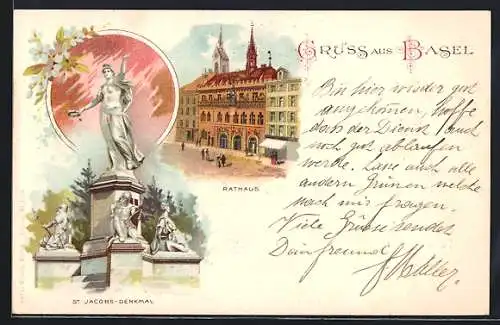 GRUSS AUS BASEL
Bin hier wieder gut
angekom̄en, hoffe
dass der Dienst auch
noch gut ablaufen
werde. Lasse auch alle
andern Grünen welche
nach mir fragen.
Viele Grüsse sendet
Dein freund
RATHAUS
ST. JACOBS-DENKMAL